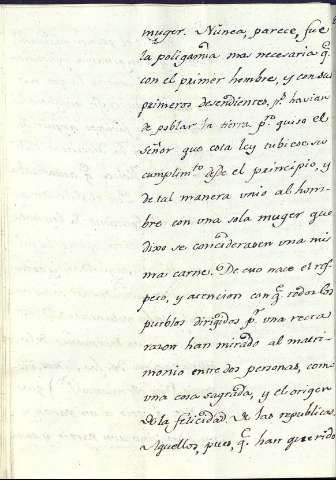 muger. Nunca, parece, fue
la poligamia mas necesaria q.
con el primer hombre, y con sus
primeros desendientes, p.r havian
de poblar la tierra p.o quiso el
Señor que esta ley tubiese su
cumplim.to desde el principio, y
de tal manera unio al hom-
bre con una sola muger que
dixo se considerasen una mis
ma carne. De esto nace el res-
peto, y atencion con q. todos los
pueblos dirigidos p.r una recta
razon han mirado al matri-
monio entre dos personas, como
una cosa sagrada, y el origen
de la felicidad de las republicas.
Aquellos, pues, q. han querido